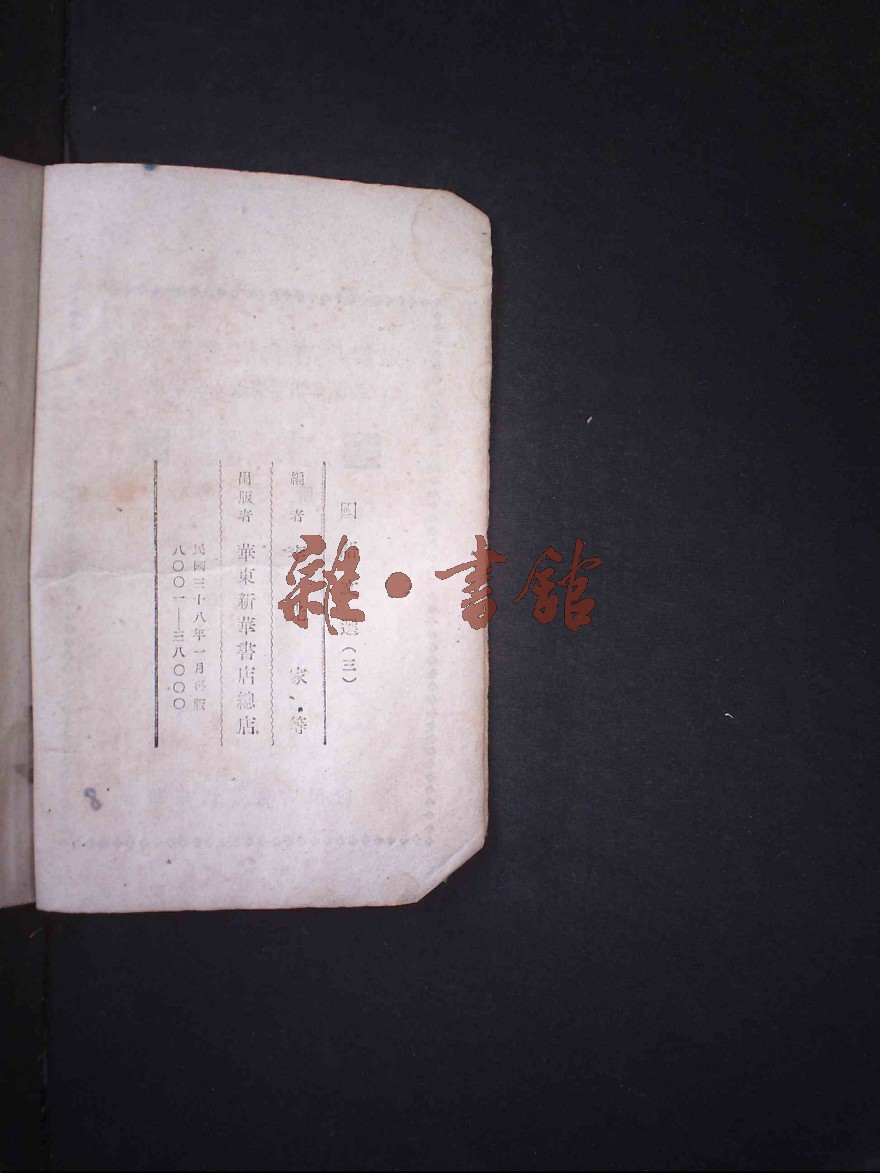 國 選(三)
編者 家、等
出版者 華東新華書店總店
民國三十八年一月再版
八〇〇一——三八〇〇〇
8
雜·書館